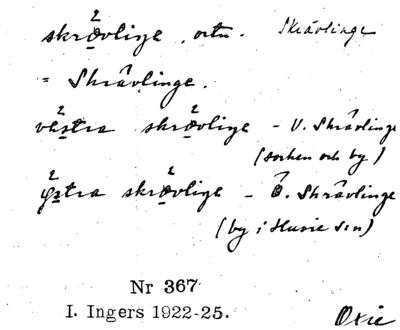 skrävlinge, ortn. Skrävlinge
= Skrävlinge.
västra skrävlinge - V. Skrävlinge
(socken och by)
östra skrävlinge - Ö. Skrävlinge
(by i Husie sn)
Nr 367
I. Ingers 1922-25.
Oxie